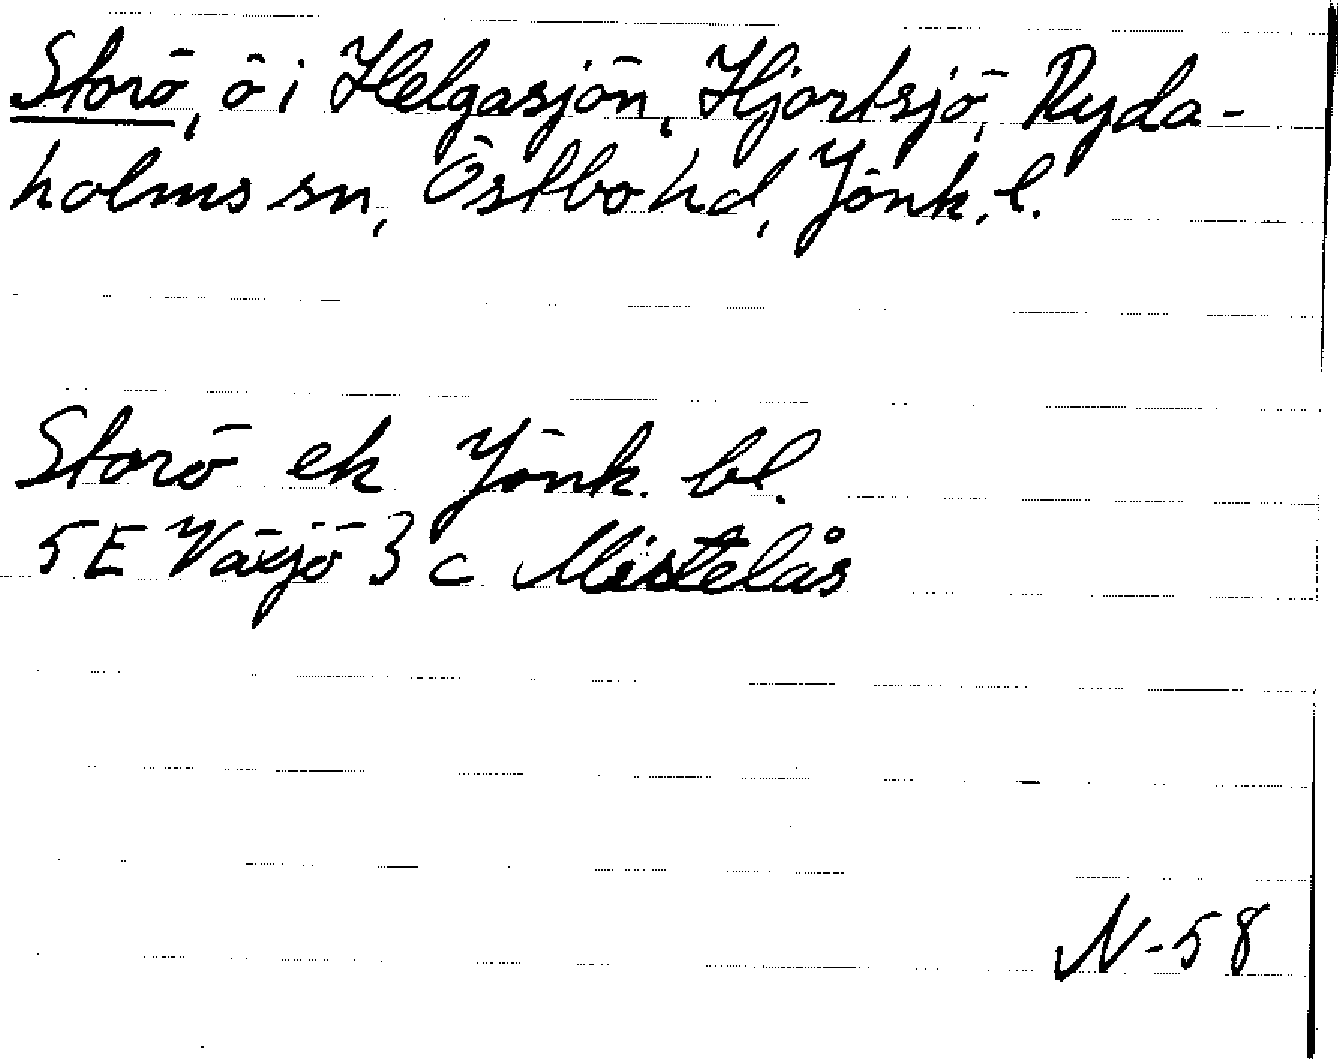 Storö, ö i Helgasjön, Hjortsjö, Ryda-
holms sn, Östbo hd, Jönk. l.
Storö ek Jönk. bl.
5E Växjö 3 c Mistelås
N-58